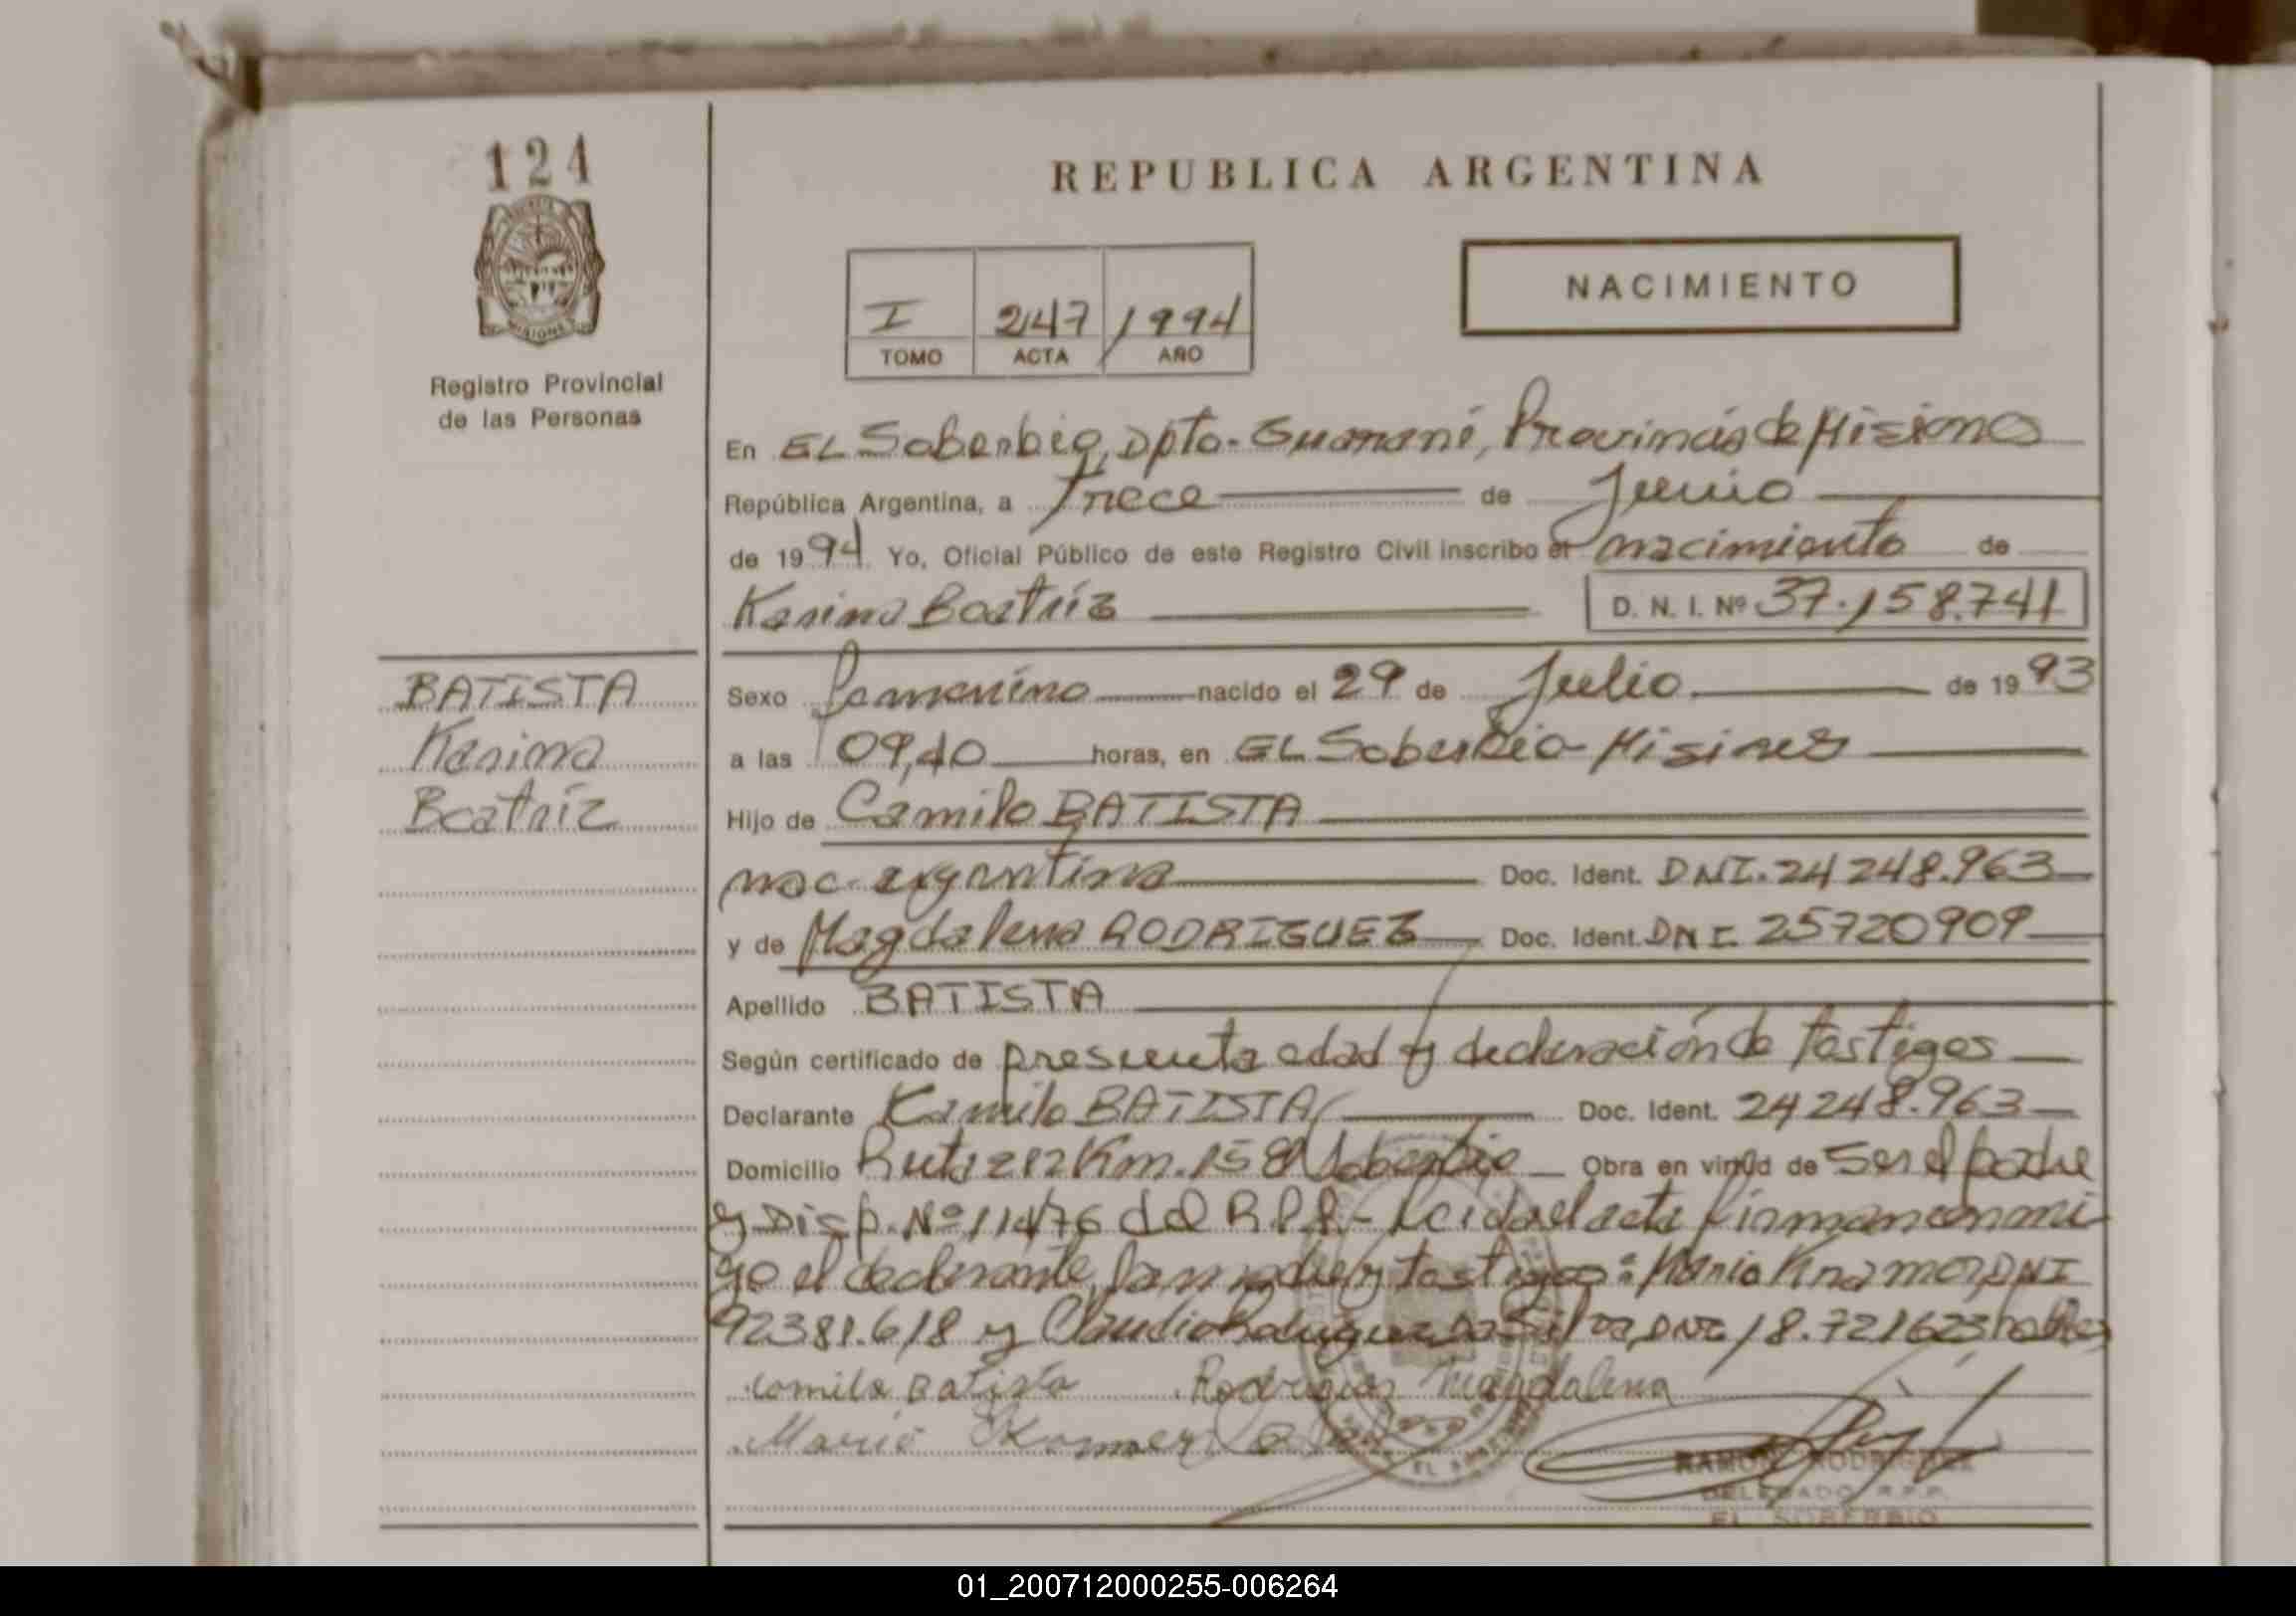 124
REPUBLICA ARGENTINA
NACIMIENTO
I 247 1994
TOMO ACTA AÑO
MISIONES
Registro Provincial
de las Personas
En EL Soberbio, Dpto. Guaraní, Provincia de Misiones
República Argentina, a Trece de Junio
de 1994 Yo, Oficial Público de este Registro Civil inscribo el nacimiento de
Karina Beatríz D. N. I. Nº 37.158.741
BATISTA
Karina
Beatríz
Sexo Femenino nacido el 29 de Julio de 1993
a las 09,40 horas, en EL Soberbio - Misiones
Hijo de Camilo BATISTA
nac. argentina Doc. Ident. DNI. 24 248.963
y de Magdalena RODRIGUEZ Doc. Ident. DNI 25720909
Apellido BATISTA
Según certificado de presunta edad y declaración de testigos
Declarante Kamilo BATISTA Doc. Ident. 24 248.963
Domicilio Ruta 212 Km. 15 El Soberbio Obra en virtud de Ser el padre
y Disp. Nº 114/76 del R.P.P. - Leida el acta firman conmi
go el declarante, la madre y testigos: Mario Kramer DNI
92381.618 y Claudio Rodriguez Da Silva DNI 18.721623
Camilo Batista Rodriguez Magdalena
Mario Kramer
RAMON RODRIGUEZ
DELEGADO R.P.P.
EL SOBERBIO
01_200712000255-006264